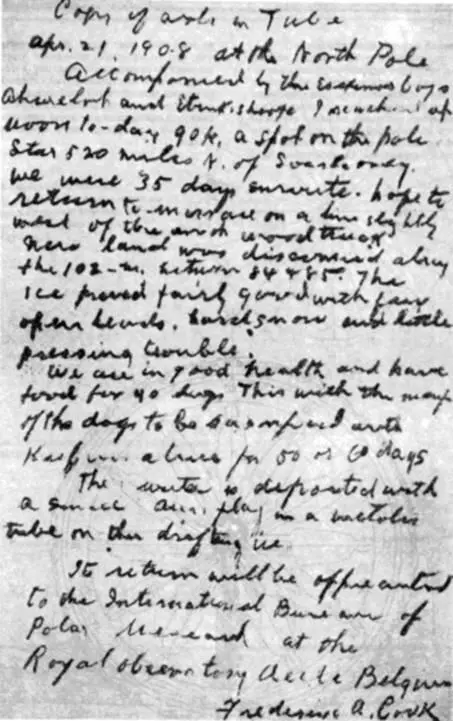 Copy of note in Tube
Apr. 21, 1908 at the North Pole
Accompanied by the Eskimo boys
Ahwelah and Etukishook I reached at
noon to-day 90 N. a spot on the polar
sea 520 miles N. of Svartevoeg.
We were 35 days enroute. Hope to
return to-morrow on a line slightly
west of the
New land was discovered along
the 102 M. between 84 & 85. The
ice proved fairly good with few
open leads, hard snow and little
pressing trouble.
We are in good health and have
food for 40 days. This with the meat
of the dogs to be sacrificed will
keep us alive for 50 or 60 days
This note is deposited with
a small Am. flag in a metallic
tube on the drifting ice.
Its return will be appreciated
to the International Bureau of
Polar Research at the
Royal Observatory Uccle Belgium
Frederick A. Cook